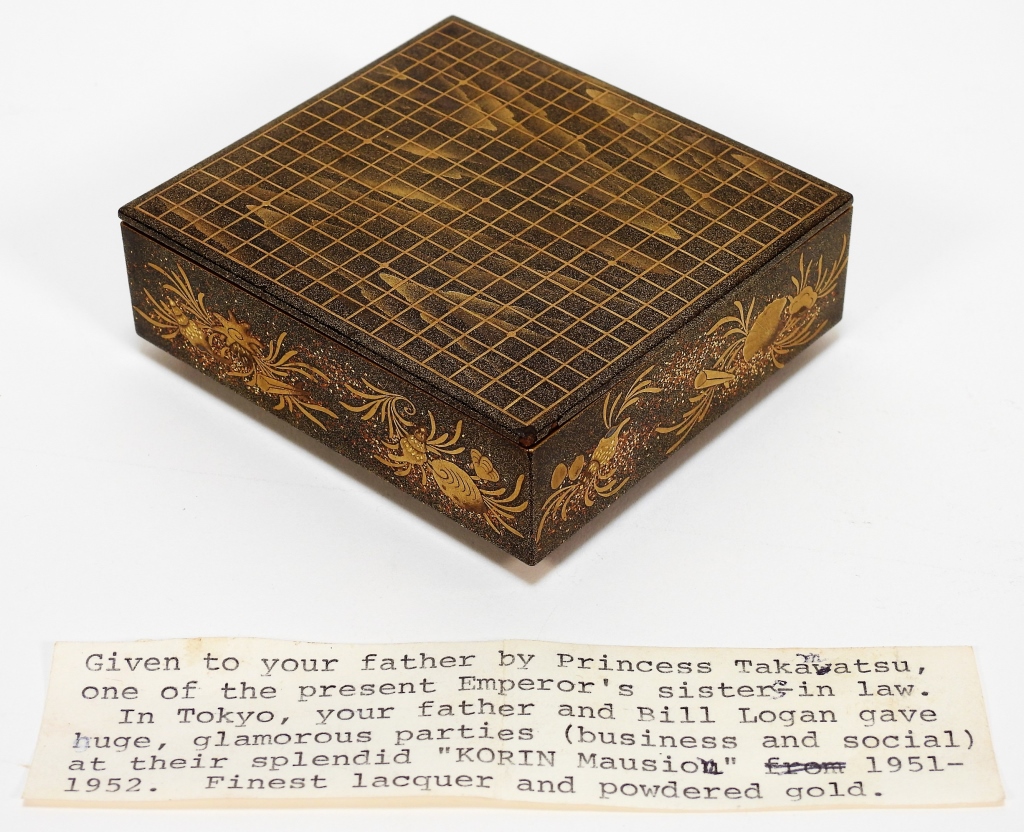 Given to your father by Princess Takamatsu,
one of the present Emperor's sisters-in law.
In Tokyo, your father and Bill Logan gave
huge, glamorous parties (business and social)
at their splendid "KORIN Mausion" from 1951-
1952. Finest lacquer and powdered gold.